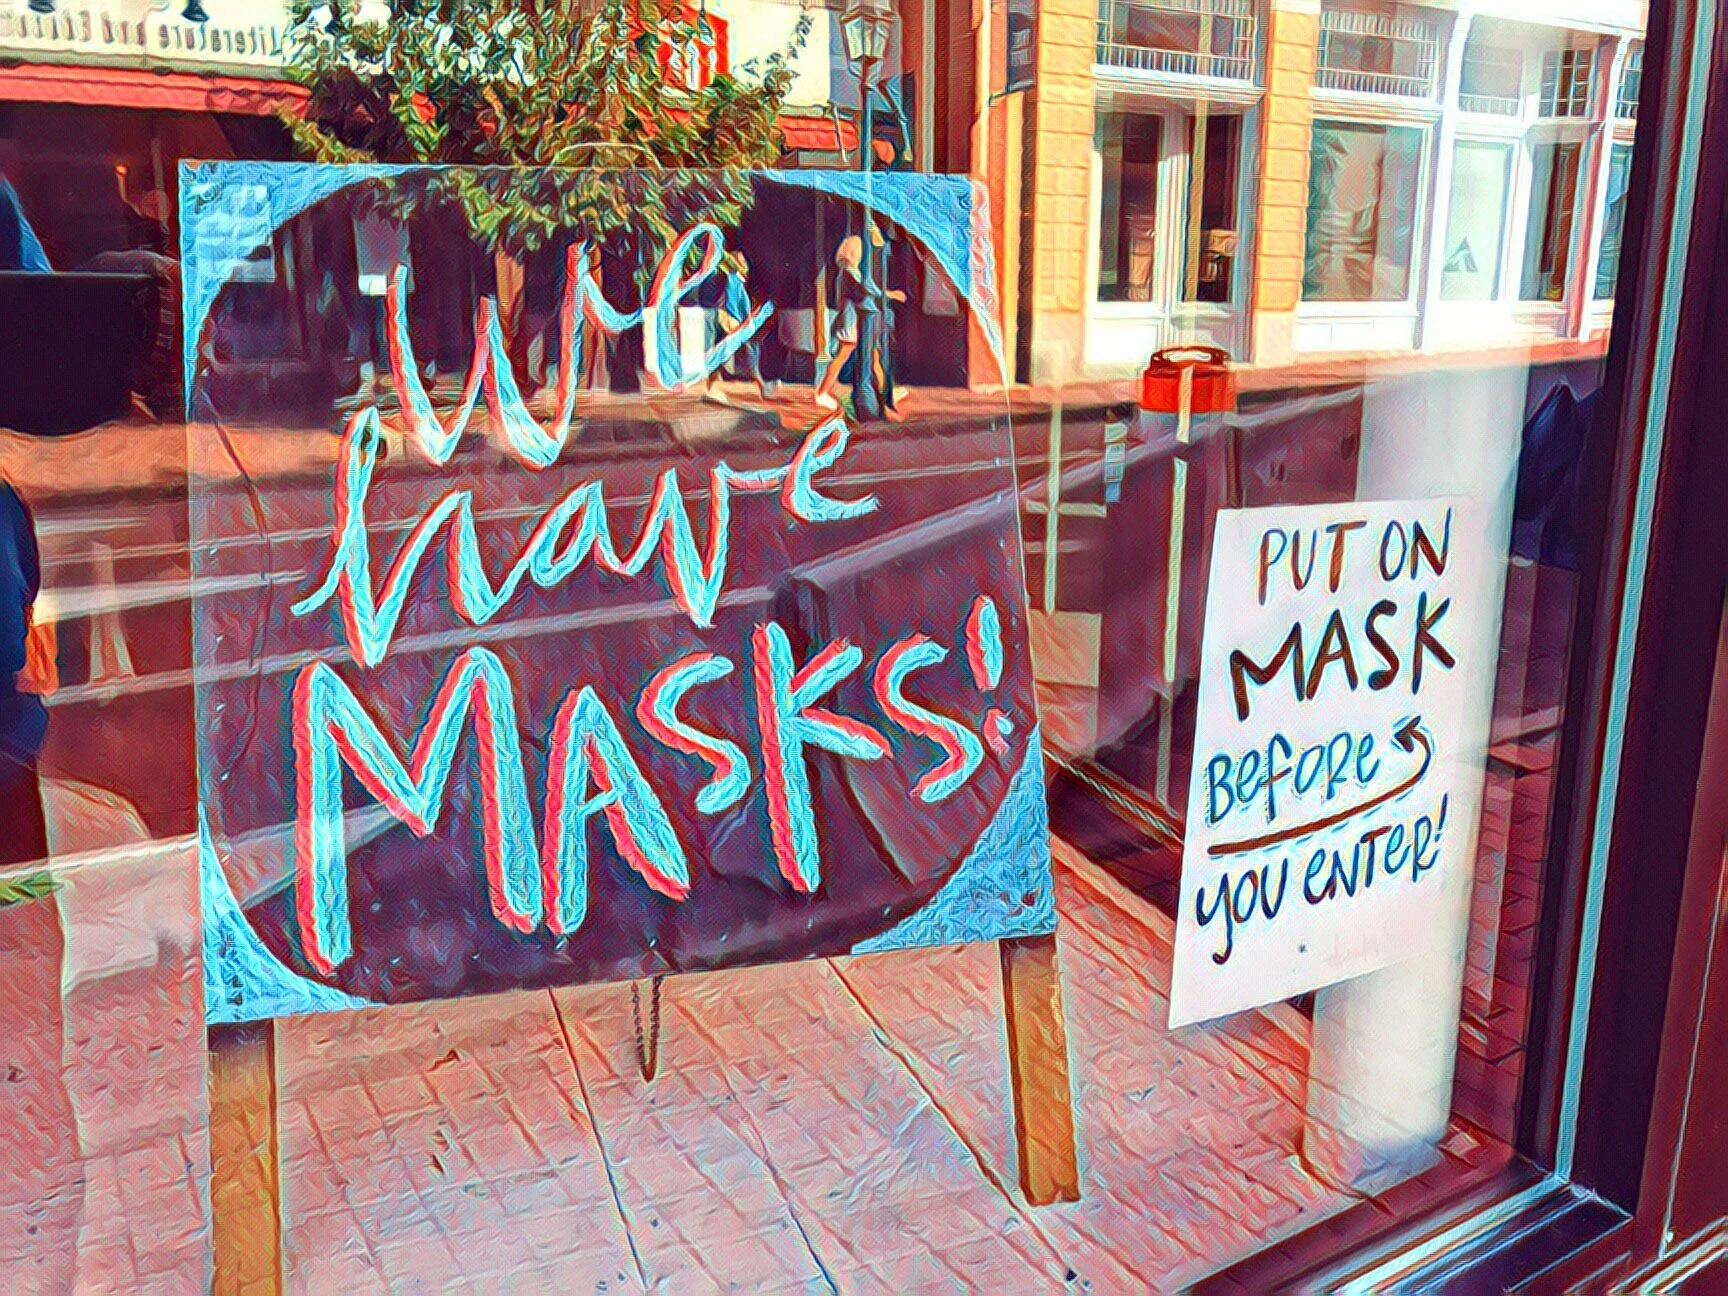 Literature and
we
have
MASKS!
PUT ON
MASK
BEFORE
YOU ENTER!